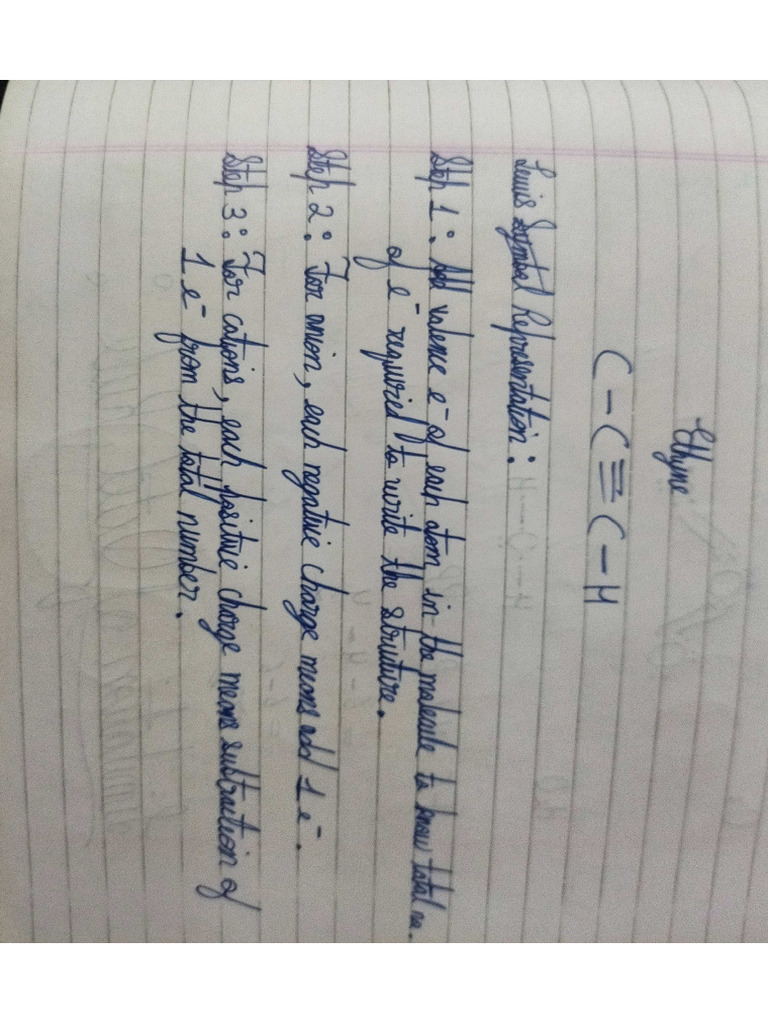 Ethyne
C – C ≡ C – H
Lewis Symbol Representation :
Step 1 : Add valence e⁻ of each atom in the molecule to know total no.
of e⁻ required to write the structure.
Step 2 : For anion, each negative charge means add 1 e⁻.
Step 3 : For cations, each positive charge means subtraction of
1 e⁻ from the total number.